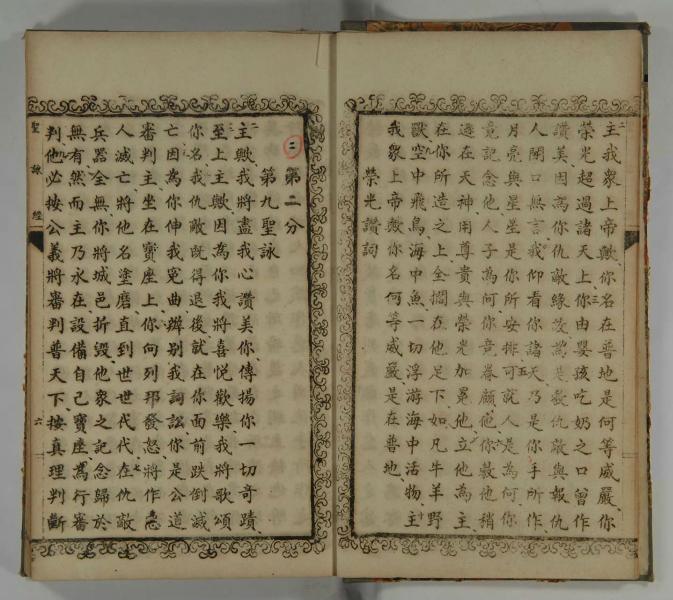 主我眾上帝歟你名在普地是何等威嚴你
榮光超過諸天上你由嬰孩吃奶之口曾作
讚美因為你仇敵緣故為是敵仇敵與報仇
人閉口無言我仰看你諸天乃是你手所作
月亮與星星是你所安排可就人是為何你
竟記念他人子為何你竟眷顧他你教他稍
遜在天神用尊貴與榮光加冕他立他為主
在你所造之上全擱在他足下如凡牛羊野
獸空中飛鳥海中魚一切浮游海中活物主
我眾上帝歟你名何等威嚴是在普地
榮光讚詞
二
第二分
第九聖詠
主歟我將盡我心讚美你傳揚你一切奇蹟
至上主歟因為你我將喜悅歡樂我將歌頌
你名我仇敵既得退後就在你面前跌倒滅
亡因為你伸我冤曲辦別我詞訟你是公道
審判主坐在寶座上你向列邦發怒將作惡
人滅亡將他名塗磨直到世世代代在仇敵
兵器全無你將城邑折毀他眾之記念歸於
無有然而主乃永在設備自己寶座為行審
判他必按公義將審判普天下按真理判斷
聖詠經
六